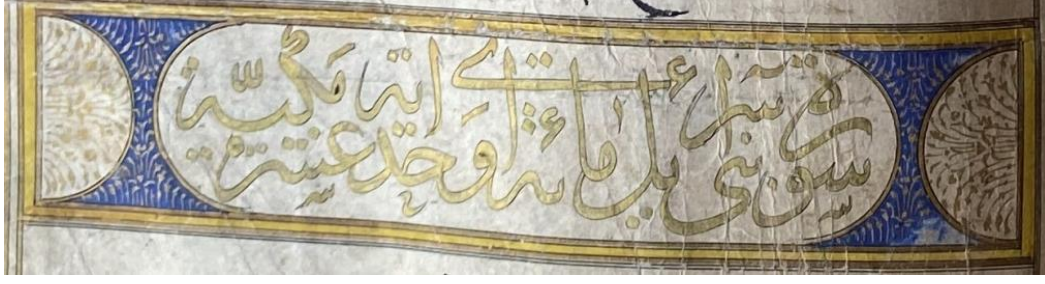 سورة بني إسرائيل مائة واحد عشرة اية مكية